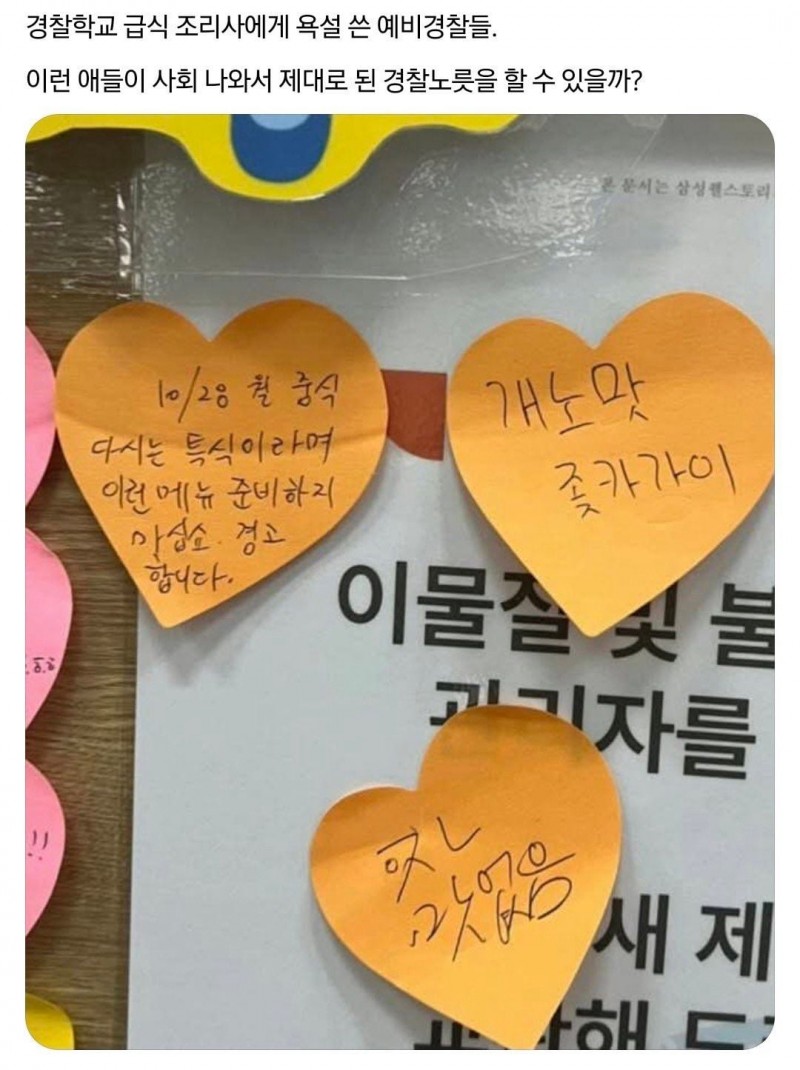 경찰학교 급식 조리사에게 욕설 쓴 예비경찰들.
이런 애들이 사회 나와서 제대로 된 경찰노릇을 할 수 있을까?
본 문서는 삼성웰스토리
10/28 월 중식
다시는 특식이라며
이런메뉴 준비하지
마십쇼. 경고
합니다.
개노맛
좆카가이
이물질 및 불
관리자를
맛없음
새 제
!!